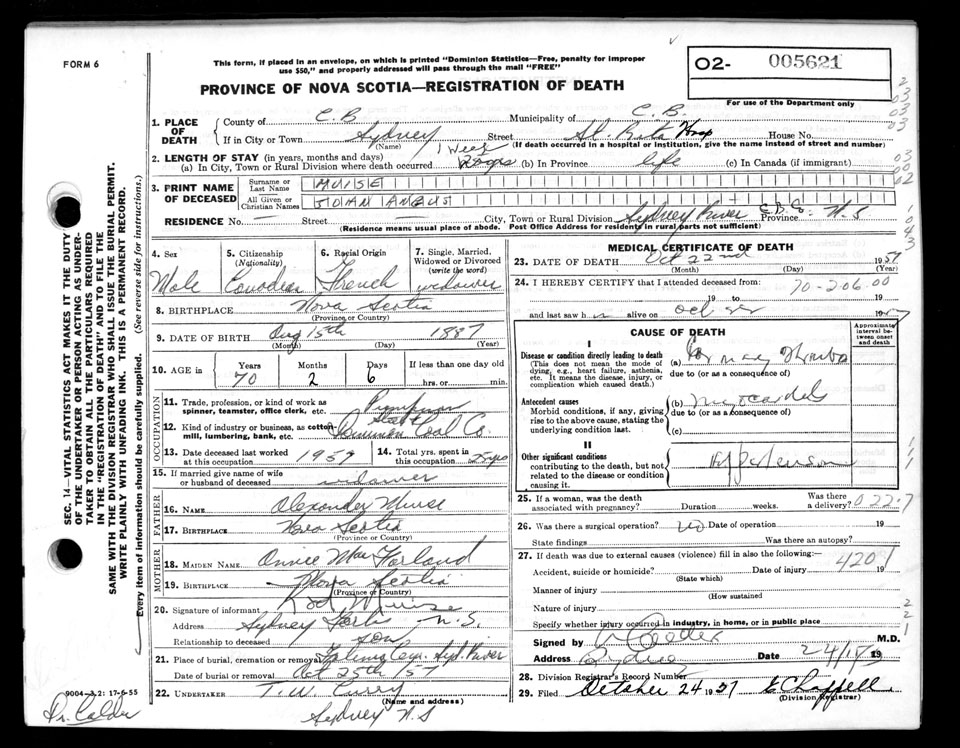 FORM 6
This form, if placed in an envelope, on which is printed "Dominion Statistics—Free, penalty for improper
use $50," and properly addressed will pass through the mail "FREE"
O2- 005621
For use of the Department only
PROVINCE OF NOVA SCOTIA—REGISTRATION OF DEATH
1. PLACE OF DEATH
County of C.B Municipality of C.B.
If in City or Town Sydney Street St. Rita Hosp House No.
(Name) (If death occurred in a hospital or institution, give the name instead of street and number)
2. LENGTH OF STAY (in years, months and days)
(a) In City, Town or Rural Division where death occurred 1 Week (b) In Province life (c) In Canada (if immigrant)
3. PRINT NAME OF DECEASED
Surname or Last Name MUISE
All Given or Christian Names JOHN ANGUS
RESIDENCE No. — Street — City, Town or Rural Division Sydney River C.B. Province N.S
(Residence means usual place of abode. Post Office Address for residents in rural parts not sufficient)
4. Sex Male
5. Citizenship (Nationality) Canadian
6. Racial Origin French
7. Single, Married, Widowed or Divorced (write the word) widower
8. BIRTHPLACE Nova Scotia
(Province or Country)
9. DATE OF BIRTH Aug 15th 1887
(Month) (Day) (Year)
10. AGE in Years 70 Months 2 Days 6 If less than one day old hrs. or min.
OCCUPATION
11. Trade, profession, or kind of work as spinner, teamster, office clerk, etc.
12. Kind of industry or business, as cotton-mill, lumbering, bank, etc. Dominion Coal Co.
13. Date deceased last worked at this occupation 1957
14. Total yrs. spent in this occupation 25 yrs
15. If married give name of wife or husband of deceased widower
FATHER
16. Name Alexander Muise
17. Birthplace Nova Scotia
(Province or Country)
MOTHER
18. Maiden Name Annie Mac Farland
19. Birthplace Nova Scotia
(Province or Country)
20. Signature of informant Muise
Address Sydney Forks N.S.
Relationship to deceased son
21. Place of burial, cremation or removal Syd. River
Date of burial or removal Oct 25th 1957
22. UNDERTAKER T.W. Curry
(Name and address)
Sydney N.S
MEDICAL CERTIFICATE OF DEATH
23. DATE OF DEATH Oct 22nd 1957
(Month) (Day) (Year)
24. I HEREBY CERTIFY that I attended deceased from: 70-206.00
19 to 19
and last saw h alive on 19
CAUSE OF DEATH
Approximate interval between onset and death
I
Disease or condition directly leading to death
(This does not mean the mode of dying, e.g., heart failure, asthenia, etc. It means the disease, injury, or complication which caused death.)
(a) Coronary Thrombo
due to (or as a consequence of)
Antecedent causes
Morbid conditions, if any, giving rise to the above cause, stating the underlying condition last.
(b)
due to (or as a consequence of)
(c)
II
Other significant conditions
contributing to the death, but not related to the disease or condition causing it.
Hypertension
25. If a woman, was the death associated with pregnancy? Duration weeks. Was there a delivery? 022.7
26. Was there a surgical operation? No Date of operation 19
State findings Was there an autopsy?
27. If death was due to external causes (violence) fill in also the following:
Accident, suicide or homicide? Date of injury 4201 19
(State which)
Manner of injury
(How sustained
Nature of injury
Specify whether injury occurred in industry, in home, or in public place
Signed by M.D.
Address Sydney Date
28. Division Registrar's Record Number
29. Filed October 24 1957
(Division Registrar)
SEC. 14—VITAL STATISTICS ACT MAKES IT THE DUTY
OF THE UNDERTAKER OR PERSON ACTING AS UNDER-
TAKER TO OBTAIN ALL THE PARTICULARS REQUIRED
IN THE "REGISTRATION OF DEATH" AND TO FILE THE
SAME WITH THE DIVISION REGISTRAR WHO SHALL ISSUE THE BURIAL PERMIT.
WRITE PLAINLY WITH UNFADING INK. THIS IS A PERMANENT RECORD.
Every item of information should be carefully supplied. (See reverse side for instructions.)
9004-3.2: 17-6-55
Dr. Calder